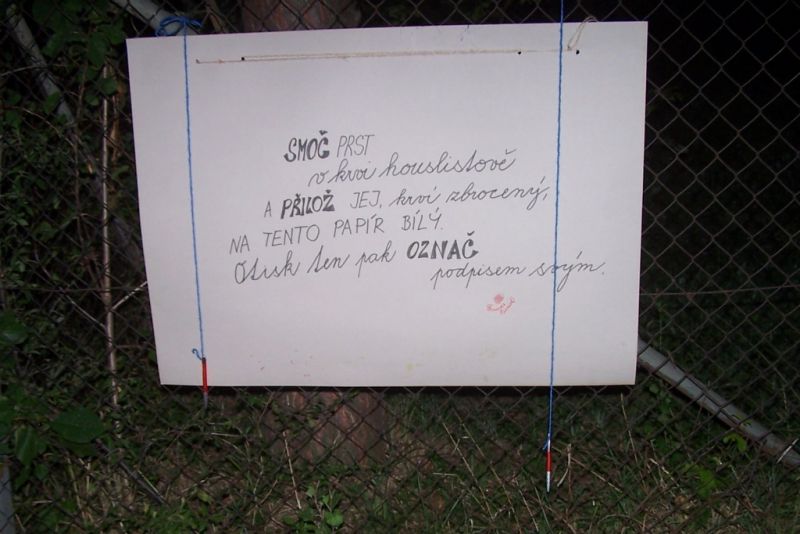 SMOČ PRST
v krvi houslistově
A PŘILOŽ JEJ, krví zbrocený,
NA TENTO PAPÍR BÍLÝ.
Otisk ten pak OZNAČ
podpisem svým.